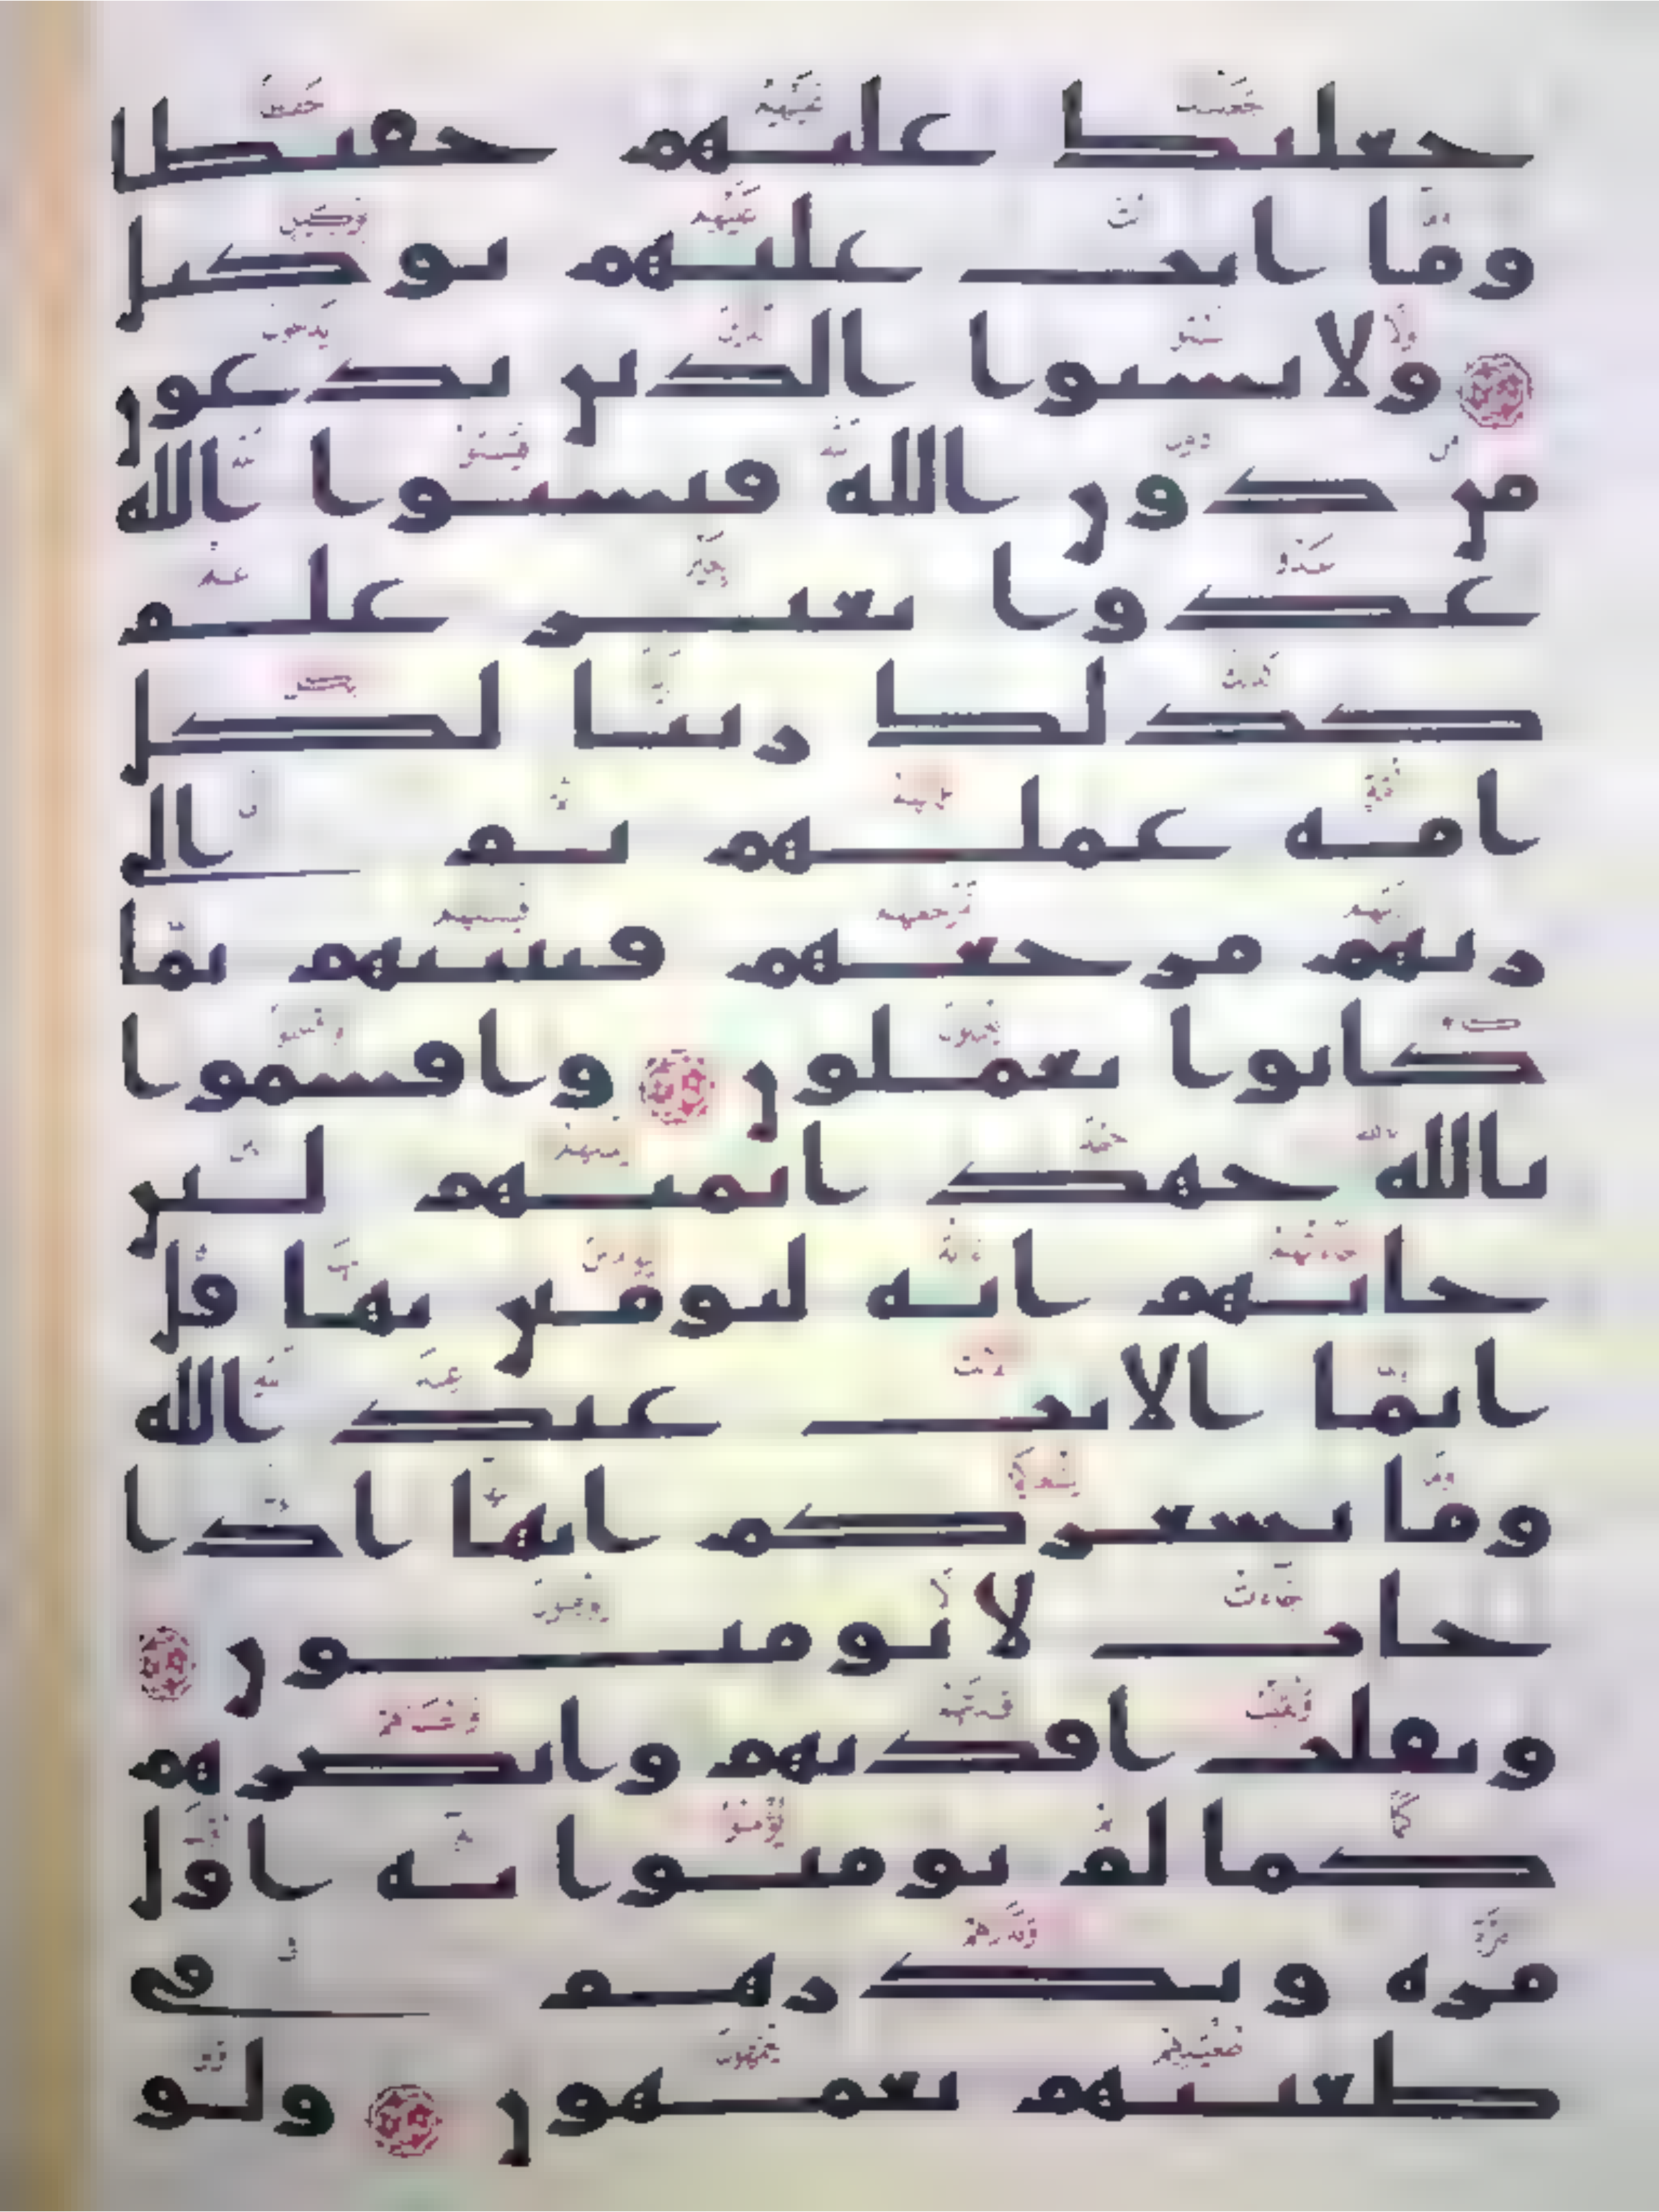 جعلنك عليهم حفيظا
وما انت عليهم بوكيل
ولا تسبوا الذين يدعون
من دون الله فيسبوا الله
عدوا بغير علم
كذلك زينا لكل
امة عملهم ثم الى
ربهم مرجعهم فينبئهم بما
كانوا يعملون واقسموا
بالله جهد ايمنهم لئن
جاتهم اية ليومنن بها قل
انما الايت عند الله
وما يشعركم انها اذا
جات لا يومنون
ونقلب افدتهم وابصرهم
كما لم يومنوا به اول
مرة ونذرهم في
طغينهم يعمهون ولو